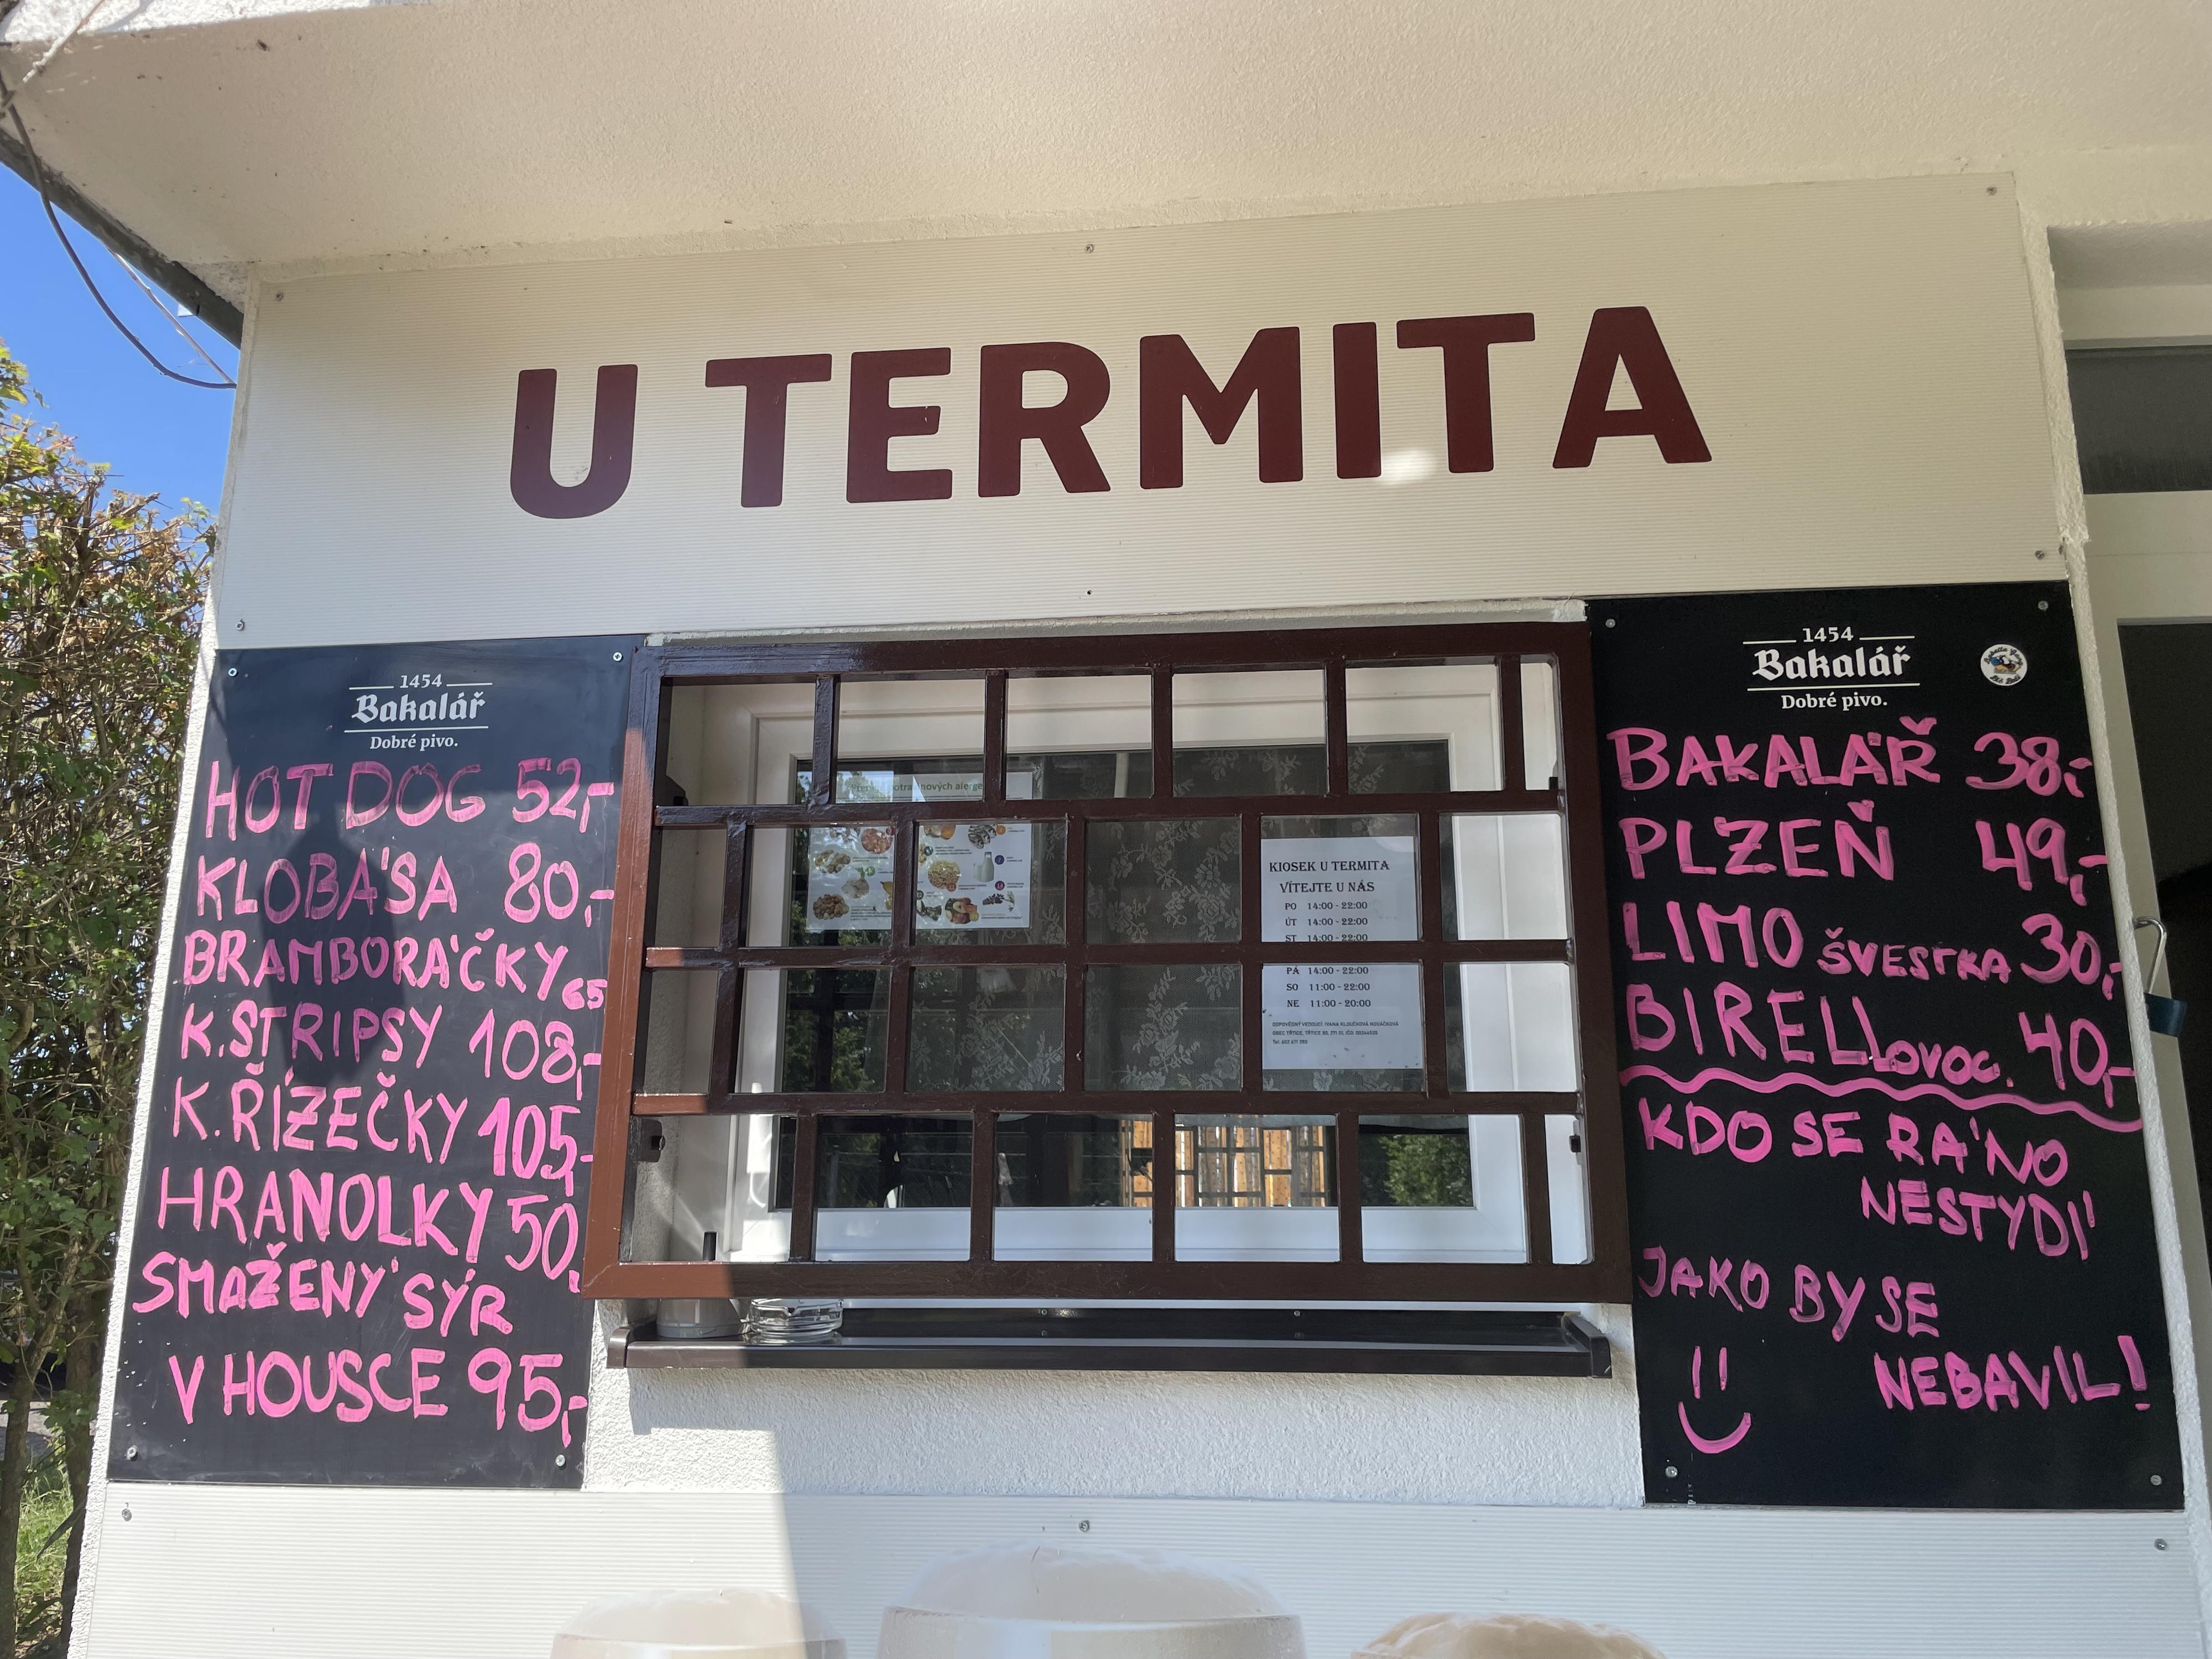 U TERMITA
1454
Bakalář
Dobré pivo.
HOT DOG 52,-
KLOBÁSA 80,-
BRAMBORÁČKY 65
K.STRIPSY 108,-
K.ŘÍZEČKY 105,-
HRANOLKY 50,
SMAŽENÝ SÝR
V HOUSCE 95,-
KIOSEK U TERMITA
VÍTEJTE U NÁS
PO 14:00 - 22:00
ÚT 14:00 - 22:00
ST 14:00 - 22:00
PÁ 14:00 - 22:00
SO 11:00 - 22:00
NE 11:00 - 20:00
1454
Bakalář
Dobré pivo.
BAKALÁŘ 38,-
PLZEŇ 49,-
LIMO ŠVESTKA 30,-
BIRELL OVOC. 40,-
KDO SE RÁNO
NESTYDÍ
JAKO BY SE
NEBAVIL!